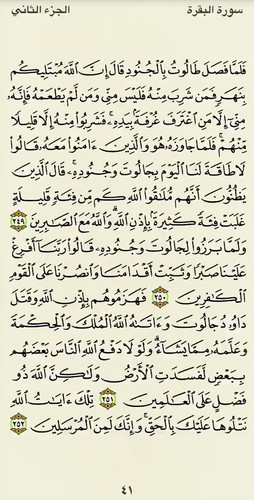 سورة البقرة الجزء الثاني
فَلَمَّا فَصَلَ طَالُوتُ بِالْجُنُودِ قَالَ إِنَّ اللَّهَ مُبْتَلِيكُم
بِنَهَرٍ فَمَن شَرِبَ مِنْهُ فَلَيْسَ مِنِّي وَمَن لَّمْ يَطْعَمْهُ فَإِنَّهُ
مِنِّي إِلَّا مَنِ اغْتَرَفَ غُرْفَةً بِيَدِهِ ۚ فَشَرِبُوا مِنْهُ إِلَّا قَلِيلًا
مِّنْهُمْ ۚ فَلَمَّا جَاوَزَهُ هُوَ وَالَّذِينَ ءَامَنُوا مَعَهُ قَالُوا
لَا طَاقَةَ لَنَا الْيَوْمَ بِجَالُوتَ وَجُنُودِهِ ۚ قَالَ الَّذِينَ
يَظُنُّونَ أَنَّهُم مُّلَاقُوا اللَّهِ كَم مِّن فِئَةٍ قَلِيلَةٍ
غَلَبَتْ فِئَةً كَثِيرَةً بِإِذْنِ اللَّهِ ۗ وَاللَّهُ مَعَ الصَّابِرِينَ ٢٤٩
وَلَمَّا بَرَزُوا لِجَالُوتَ وَجُنُودِهِ قَالُوا رَبَّنَا أَفْرِغْ
عَلَيْنَا صَبْرًا وَثَبِّتْ أَقْدَامَنَا وَانصُرْنَا عَلَى الْقَوْمِ
الْكَافِرِينَ ٢٥٠ فَهَزَمُوهُم بِإِذْنِ اللَّهِ وَقَتَلَ
دَاوُدُ جَالُوتَ وَءَاتَاهُ اللَّهُ الْمُلْكَ وَالْحِكْمَةَ
وَعَلَّمَهُ مِمَّا يَشَاءُ ۗ وَلَوْلَا دَفْعُ اللَّهِ النَّاسَ بَعْضَهُم
بِبَعْضٍ لَّفَسَدَتِ الْأَرْضُ وَلَٰكِنَّ اللَّهَ ذُو
فَضْلٍ عَلَى الْعَالَمِينَ ٢٥١ تِلْكَ ءَايَاتُ اللَّهِ
نَتْلُوهَا عَلَيْكَ بِالْحَقِّ ۚ وَإِنَّكَ لَمِنَ الْمُرْسَلِينَ ٢٥٢
٤١